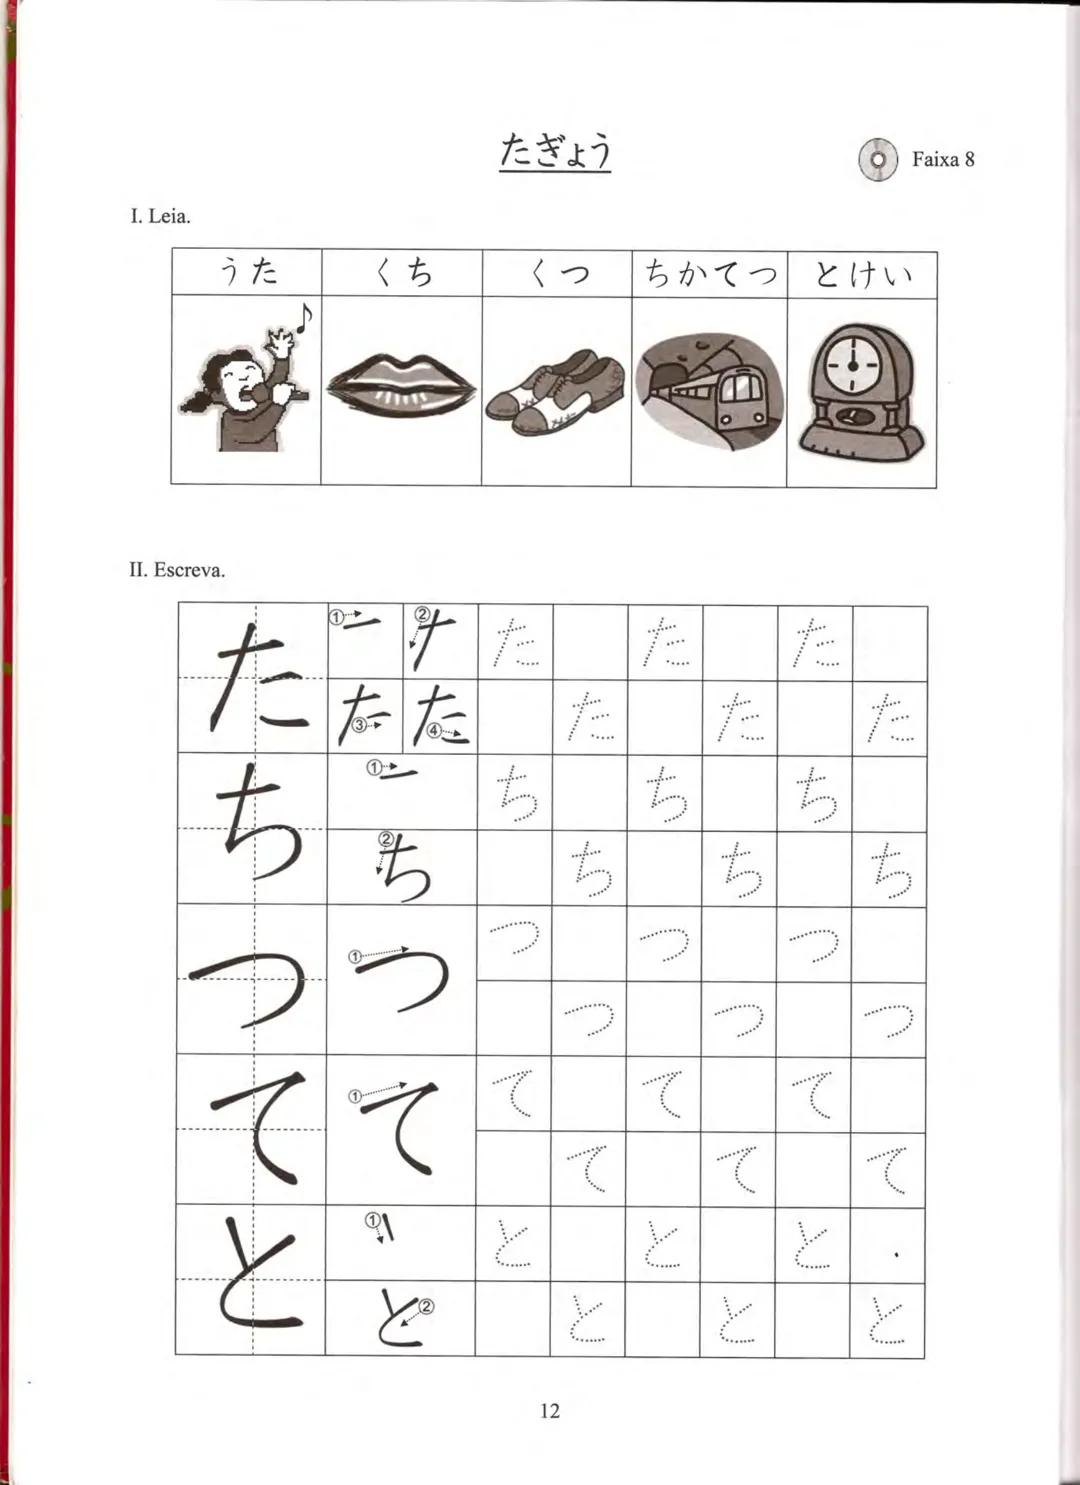 たぎょう
Faixa 8
I. Leia.
うた くち くつ ちかてつ とけい
II. Escreva.
た ① ② た た た
③ ④ た た た
ち ① ち ち ち
② ち ち ち ち
つ ① つ つ つ つ
つ つ つ
て ① て て て て
て て て
と ① と と と
と ② と と と
12